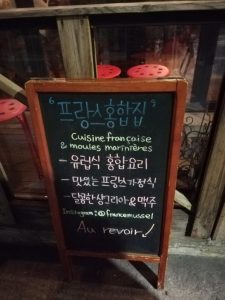 "프랑스홍합집"
Cuisine française
& moules marinières
- 유럽식 홍합요리
- 맛있는 프랑스가정식
- 달콤한 샹그리아 & 맥주
Instagram : @francemussel
Au revoir!